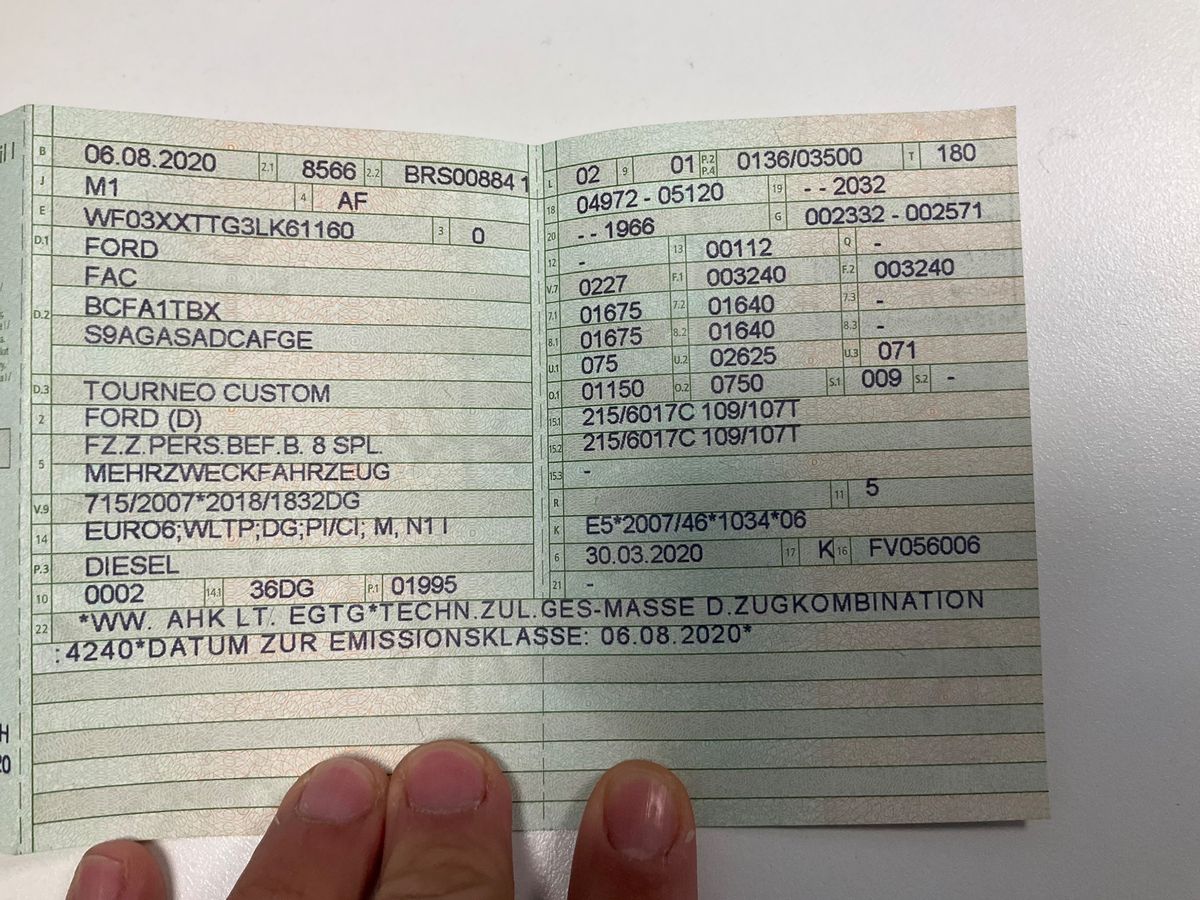 B 06.08.2020 2.1 8566 2.2 BRS00884 1
J M1 4 AF
E WF03XXTTG3LK61160 3 0
D.1 FORD
FAC
D.2 BCFA1TBX
S9AGASADCAFGE
D.3 TOURNEO CUSTOM
2 FORD (D)
FZ.Z.PERS.BEF.B. 8 SPL.
5 MEHRZWECKFAHRZEUG
V.9 715/2007*2018/1832DG
14 EURO6;WLTP;DG;PI/CI; M, N1 I
P.3 DIESEL
10 0002 14.1 36DG P.1 01995
L 02 9 01 P.2 P.4 0136/03500 T 180
18 04972 - 05120 19 - - 2032
20 - - 1966 G 002332 - 002571
12 - 13 00112 Q -
V.7 0227 F.1 003240 F.2 003240
7.1 01675 7.2 01640 7.3 -
8.1 01675 8.2 01640 8.3 -
U.1 075 U.2 02625 U.3 071
O.1 01150 O.2 0750 S.1 009 S.2 -
15.1 215/6017C 109/107T
15.2 215/6017C 109/107T
15.3 -
R 11 5
K E5*2007/46*1034*06
6 30.03.2020 17 K 16 FV056006
21 -
22 *WW. AHK LT. EGTG*TECHN.ZUL.GES-MASSE D.ZUGKOMBINATION
:4240*DATUM ZUR EMISSIONSKLASSE: 06.08.2020*